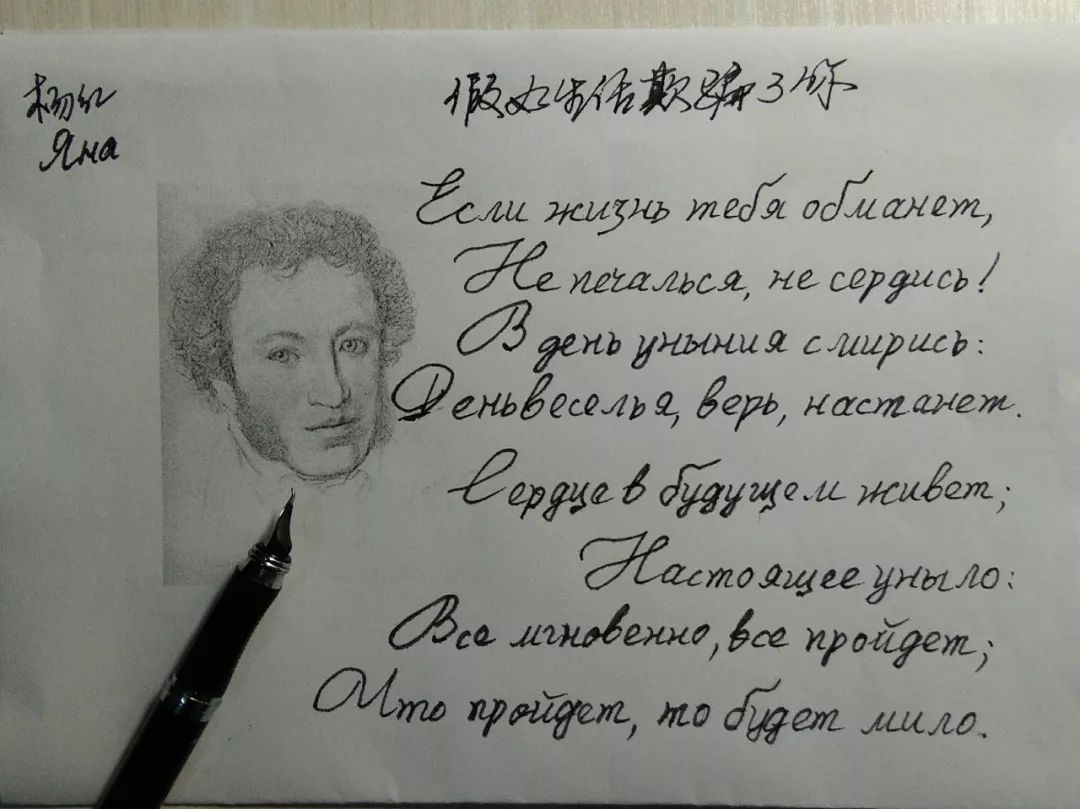 杨红
Яна
假如生活欺骗了你
Если жизнь тебя обманет,
Не печалься, не сердись!
В день уныния смирись:
Деньвеселья, верь, настанет.
Сердце в будущем живет;
Настоящее уныло:
Все мгновенно, все пройдет;
Что пройдет, то будет мило.